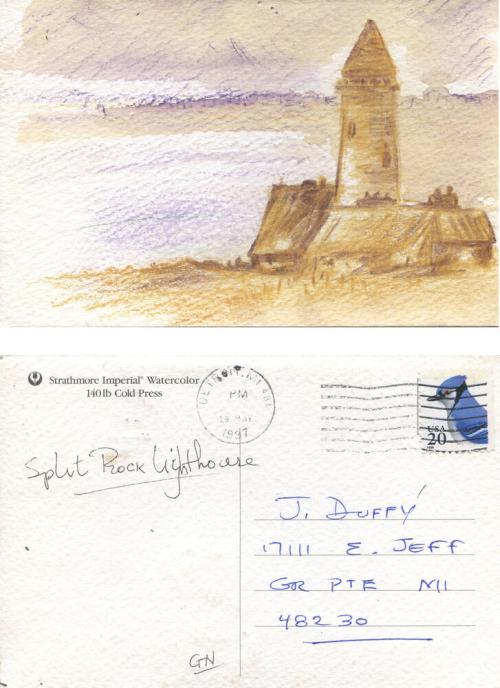 Strathmore Imperial® Watercolor
140 lb Cold Press
DETROIT, MI
PM
19 MAY
1997
USA
20
Split Rock Lighthouse
J. DUFFY
17111 E. JEFF
GR PTE MI
48230
GN